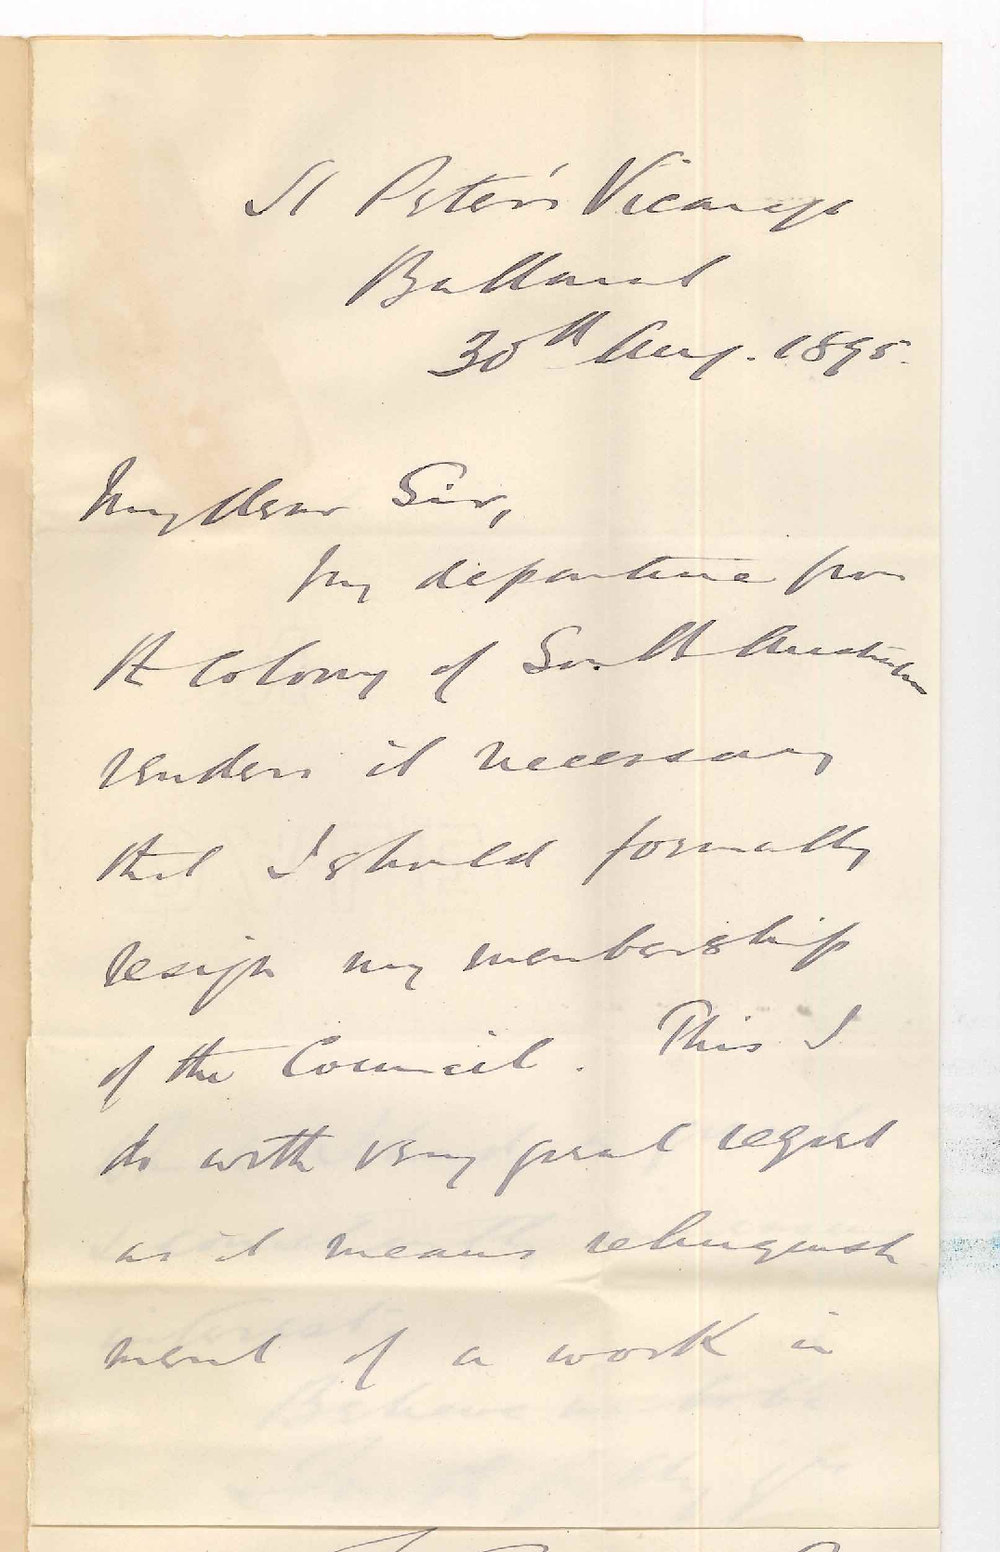 St Peter's Vicarage
Ballarat
30th Aug. 1895.
My dear Sir,
My departure from
the Colony of South Australia
renders it necessary
that I should formally
resign my membership
of the Council. This I
do with very great regret
as it means relinquish
ment of a work in